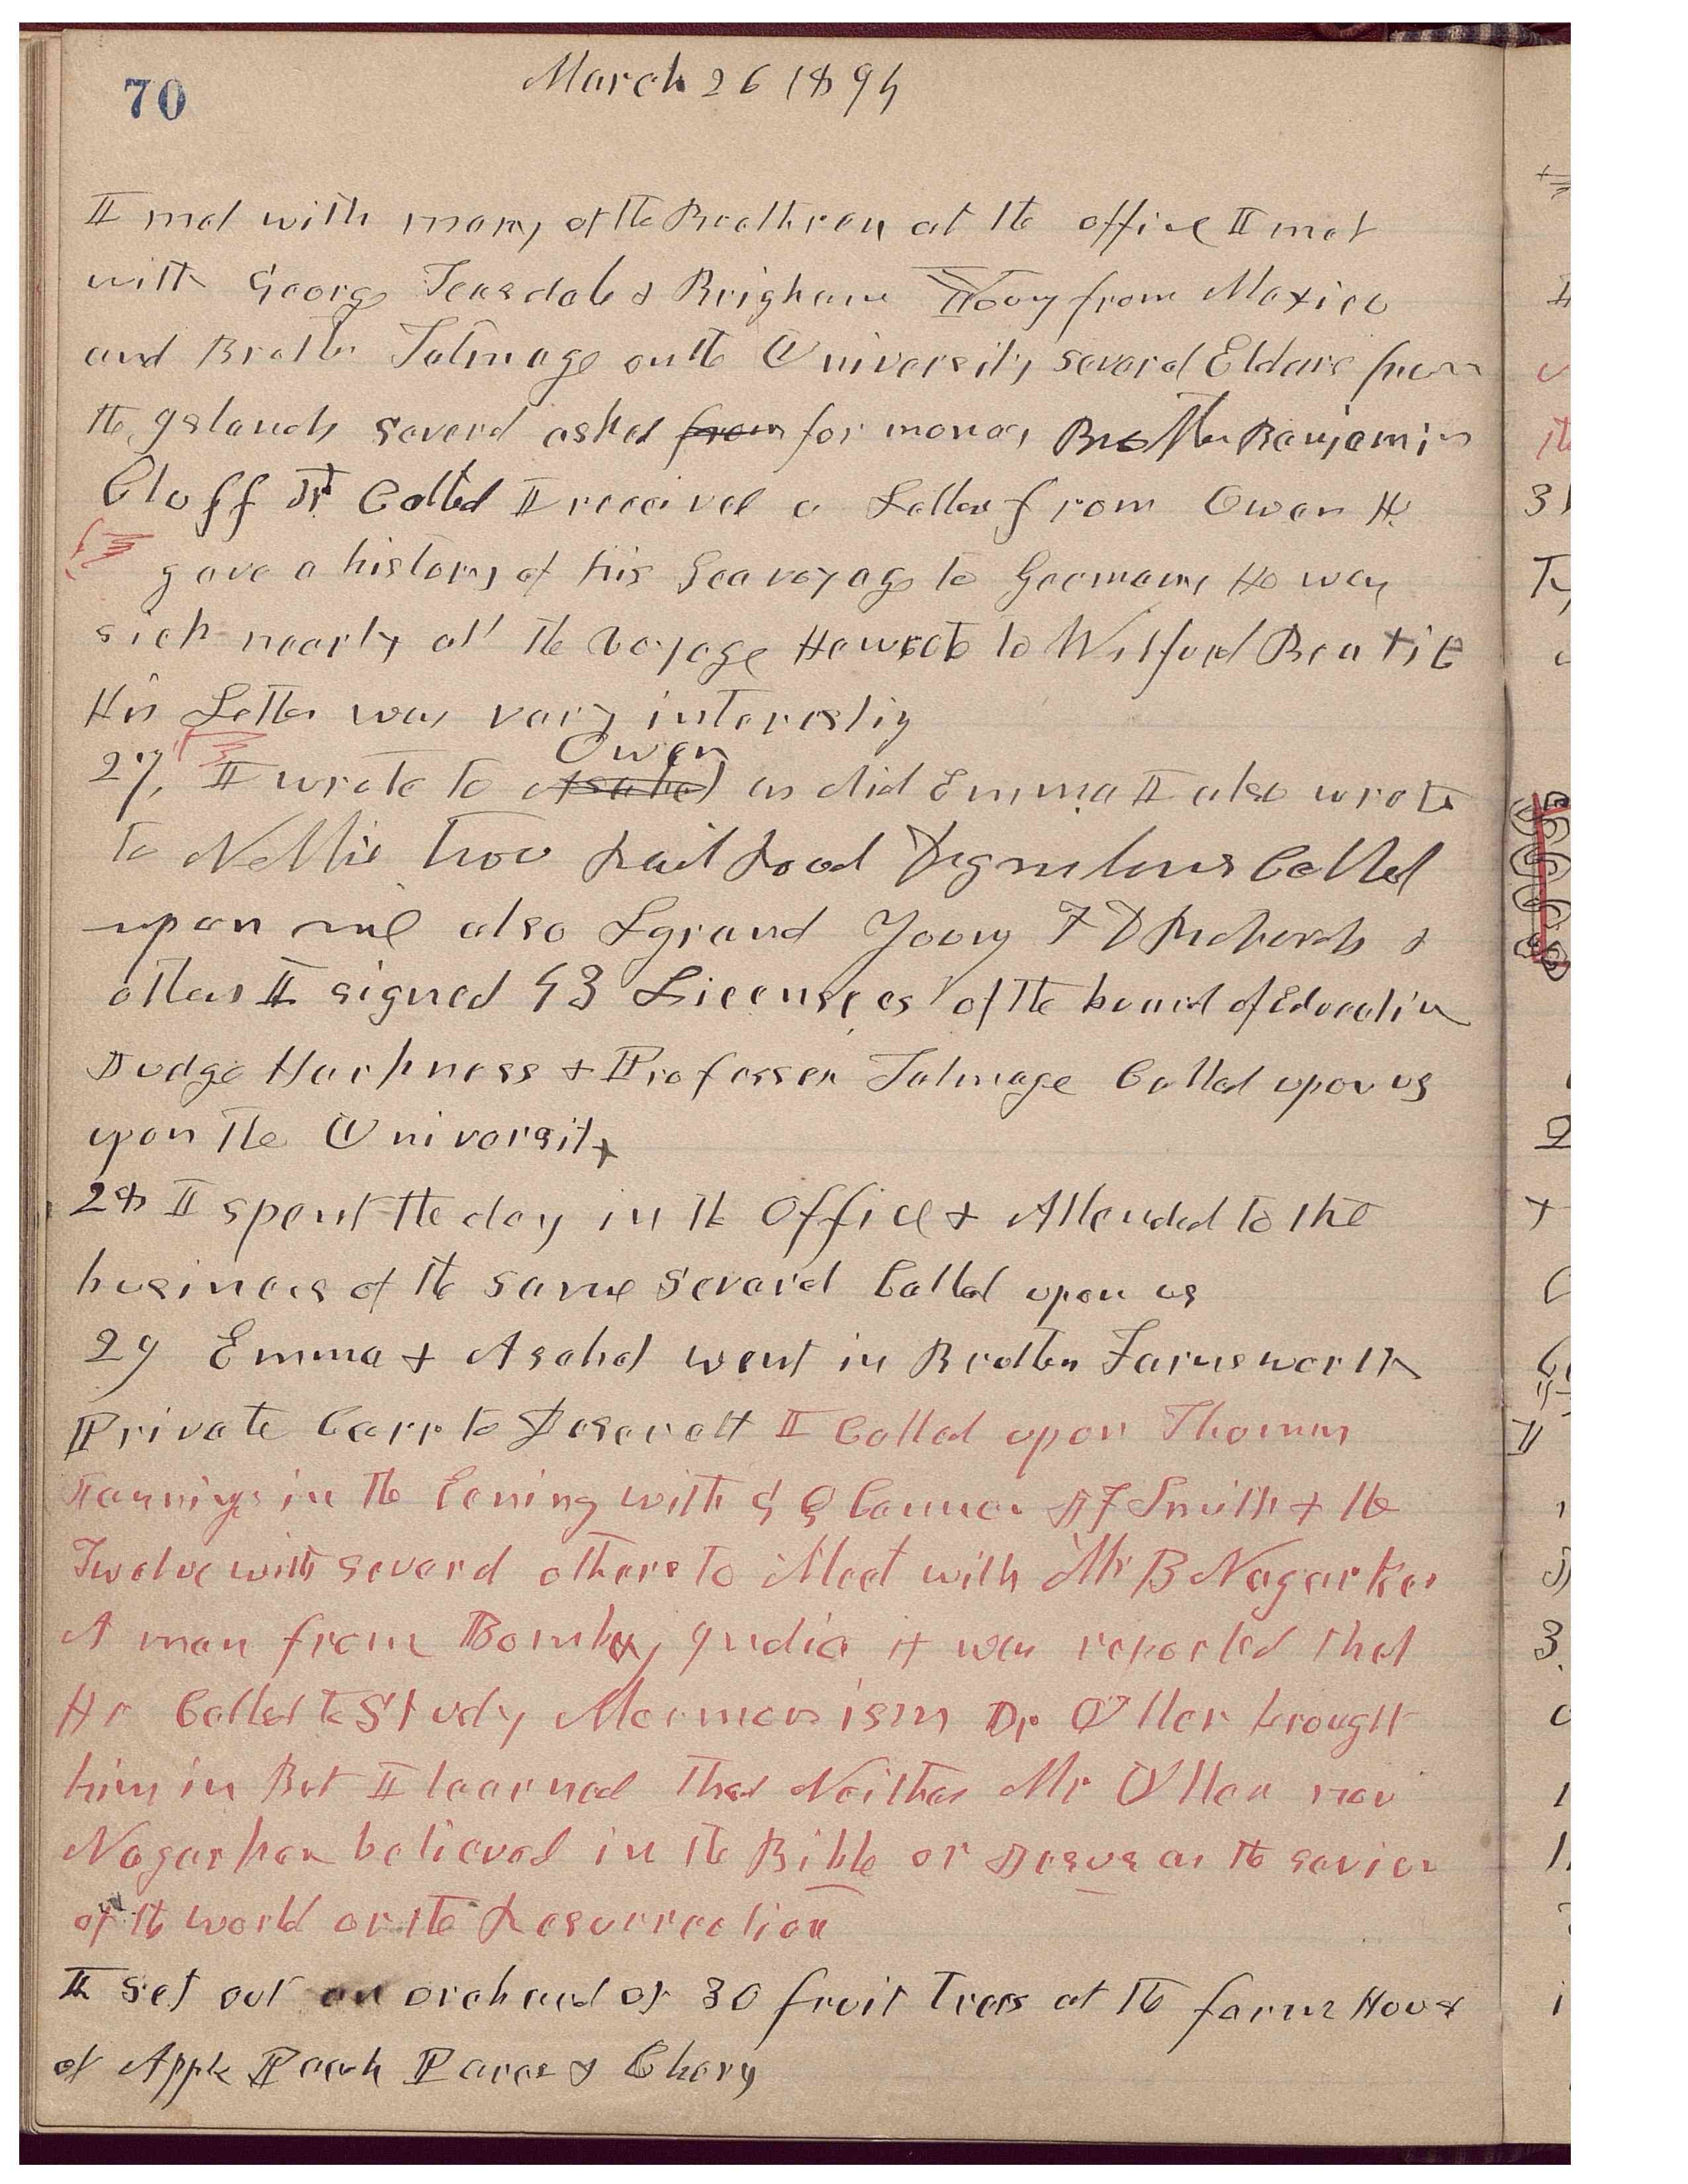 70
March 26 1894
I met with many of the Brethren at the office I met
with George Teasdale & Brigham Young from Mexico
and Brother Talmage on the University several Elders from
the Islands several asked from for money Brother Benjamin
Cluff Jr Called I received a Letter from Owen H.
gave a history of his Sea voyage to Germany He was
sick nearly all the voyage He wrote to Wilford Beatie
His Letter was very interestig
27, I wrote to Asahel Owen as did Emma I also wrote
to Nellie two Rail Road Dignitaries Called
upon me also Lgrand Young F D Richards &
others I signed 43 Licenses of the board of Education
Judge Harkness & Professer Talmage Called upon us
upon the University
28 I spent the day in the Office & Attended to the
business of the same Several Called upon us
29 Emma & Asahel went in Brother Farnsworth
Private Carr to Deserett I Called upon Thomas
Jannings in the Evening with G Q Cannon J F Smith & the
Twelve with several others to Meet with Mr B Nagarkar
A man from Bombay India it was reported that
He Called to Study Mormonism Dr Utter brought
him in But I learned that Neither Mr Utter nor
Nagarkar believed in the Bible or Jesus as the savior
of the world or the Resurrection
I set out an orchard of 30 fruit Trees at the farm House
of Apple Peach Pares & Chery